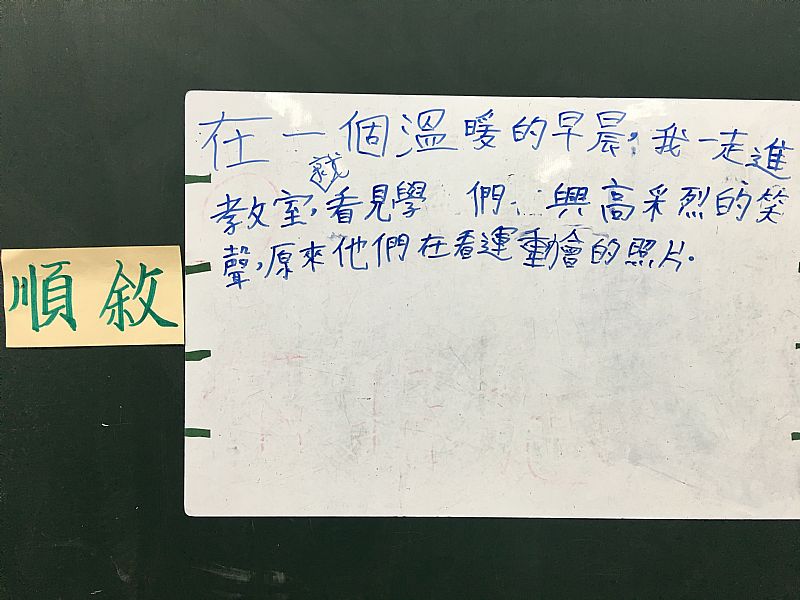 在一個溫暖的早晨,我一走進
教室,就看見學 們 興高采烈的笑
聲,原來他們在看運動會的照片.
順敘